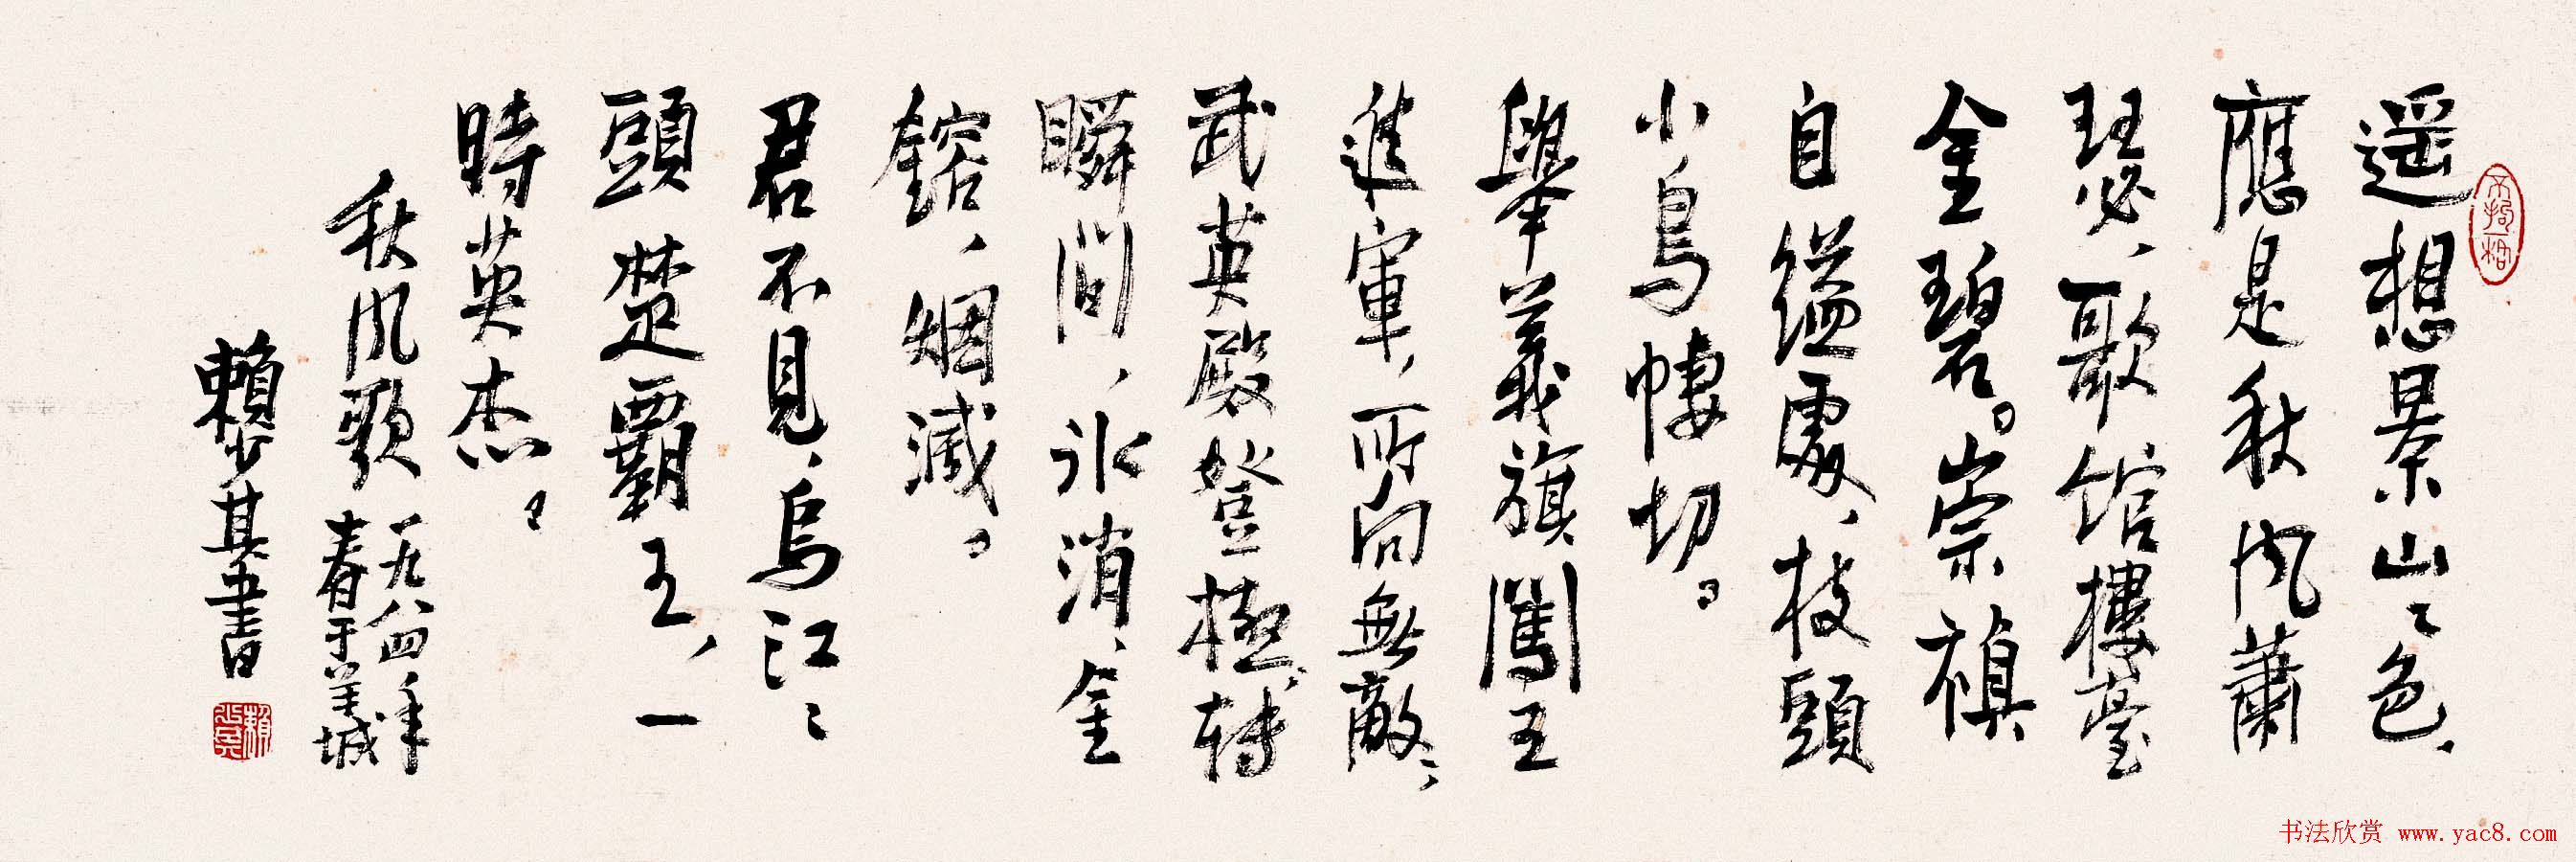 不拘一格
遥想景山〻色，
應是秋风蕭
瑟，歌馆樓臺
金碧。崇禎
自縊處，枝頭
小鳥悽切。
舉義旗，闖王
進軍，所向無敵，
武英殿登極，转
瞬间，冰消，金
鎔，烟滅。
君不見，烏江〻
頭楚霸王，一
時英杰。
秋风歌
一九八四年
春于羊城
賴少其書
书法欣赏 www.yac8.com